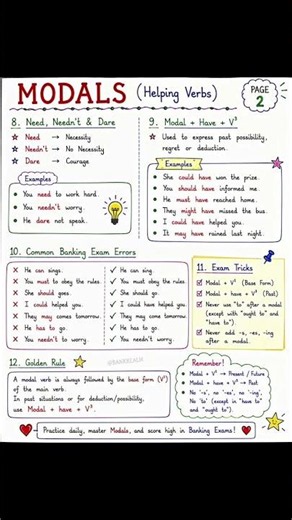 MODALS (Helping Verbs)
PAGE
2
8. Need, Needn't & Dare
☆ Need → Necessity
☆ Needn't → No Necessity
☆ Dare → Courage
Examples
• You need to work hard.
• You needn't worry.
• He dare not speak.
9. Modal + Have + V³
☆ Used to express past possibility,
regret or deduction.
Examples
• She could have won the prize.
• You should have informed me.
• He must have reached home.
• They might have missed the bus.
• I could have helped you.
• It may have rained last night.
10. Common Banking Exam Errors
✗ He can sings.
✗ You must to obey the rules.
✗ She should go.
✗ I could helped you.
✗ They may comes tomorrow
✗ He has to go.
✗ You needn't to worry.
✓ He can sing.
✓ You must obey the rules.
✓ She should go.
✓ I could have helped you.
✓ They may come tomorrow
✓ He has to go.
✓ You needn't worry.
11. Exam Tricks
☑ Modal + V¹ (Base Form)
☑ Modal + have + V³ (Past)
☑ Never use "to" after a modal
(except with "ought to" and
"have to").
☑ Never add -s, -es, -ing
after a modal.
12. Golden Rule
A modal verb is always followed by the base form (V¹)
of the main verb.
In past situations or for deduction/possibility,
use Modal + have + V³
Remember!
• Modal + V¹ → Present / Future
• Modal + have + V³ → Past
• No '-s', no '-es', no '-ing',
No 'to' (except in "have to"
and "ought to").
Practice daily, master Modals, and score high in Banking Exams!